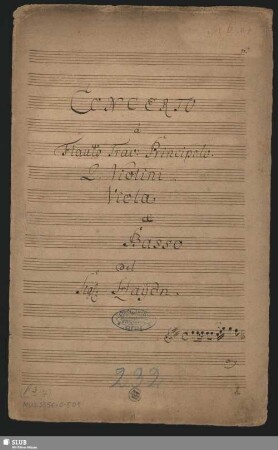 CONCERTO
à
Flauto Trav: Principale.
2 Violini.
Viola
e
Basso
del
Sigr. Haydn.
232
SLUB